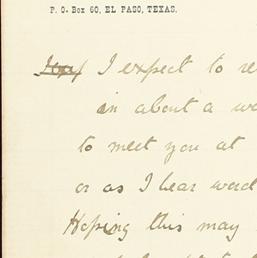 P. O. Box 60, EL PASO, TEXAS.
I expect to re
in about a we
to meet you at
or as I hear word
Hoping this may